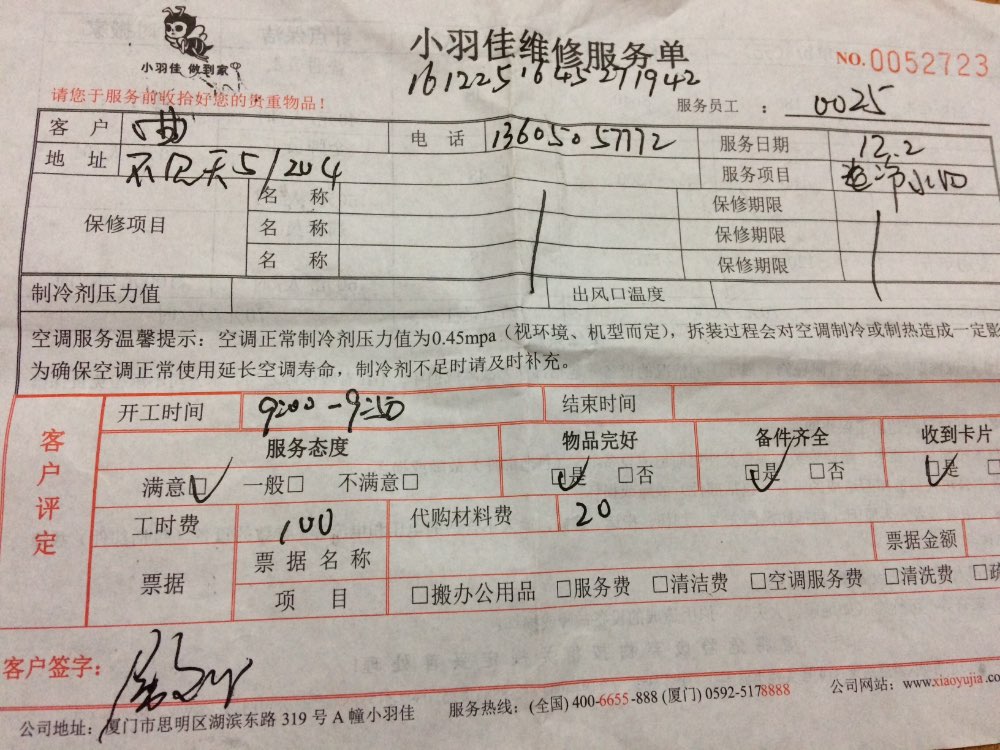 小羽佳 做到家
小羽佳维修服务单
NO.0052723
1612251645271942
请您于服务前收拾好您的贵重物品！
服务员工 ： 0025
客 户 电 话 13605057772 服务日期 12.2
地 址 不见天5/204 服务项目
保修项目
名 称 保修期限
名 称 保修期限
名 称 保修期限
制冷剂压力值 出风口温度
空调服务温馨提示：空调正常制冷剂压力值为0.45mpa（视环境、机型而定），拆装过程会对空调制冷或制热造成一定影
为确保空调正常使用延长空调寿命，制冷剂不足时请及时补充。
客户评定
开工时间 9:00-9:50 结束时间
服务态度 物品完好 备件齐全 收到卡片
满意□ 一般□ 不满意□ □是 □否 □是 □否 □是 □
工时费 100 代购材料费 20
票据 票据名称 票据金额
项 目 □搬办公用品 □服务费 □清洁费 □空调服务费 □清洗费 □疏
客户签字：
公司地址：厦门市思明区湖滨东路 319 号 A 幢小羽佳 服务热线：(全国) 400-6655-888 (厦门) 0592-5178888 公司网站：www.xiaoyujia.co